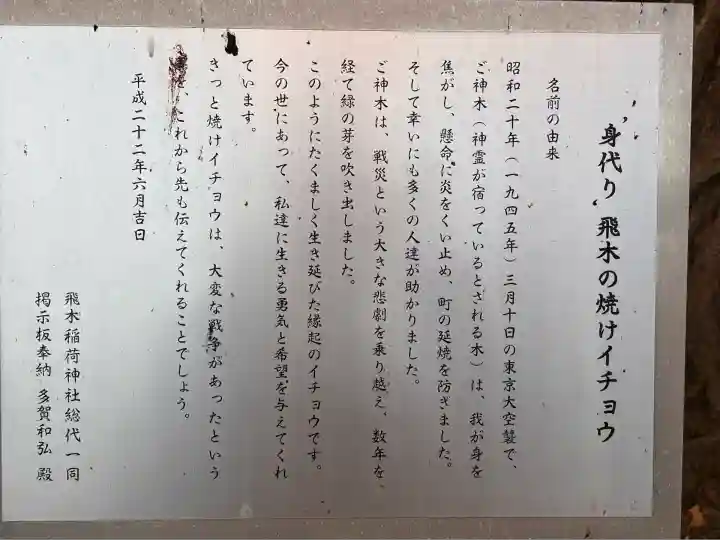 〝身代り〟飛木の焼けイチョウ
名前の由来
昭和二十年(一九四五年)三月十日の東京大空襲で、
ご神木(神霊が宿っているとされる木)は、我が身を
焦がし、懸命に炎をくい止め、町の延焼を防ぎました。
そして幸いにも多くの人達が助かりました。
ご神木は、戦災という大きな悲劇を乗り越え、数年を
経て緑の芽を吹き出しました。
このようにたくましく生き延びた縁起のイチョウです。
今の世にあって、私達に生きる勇気と希望を与えてくれ
ています。
きっと焼けイチョウは、大変な戦争があったという
を、これから先も伝えてくれることでしょう。
平成二十二年六月吉日
飛木稲荷神社総代一同
掲示板奉納 多賀和弘 殿